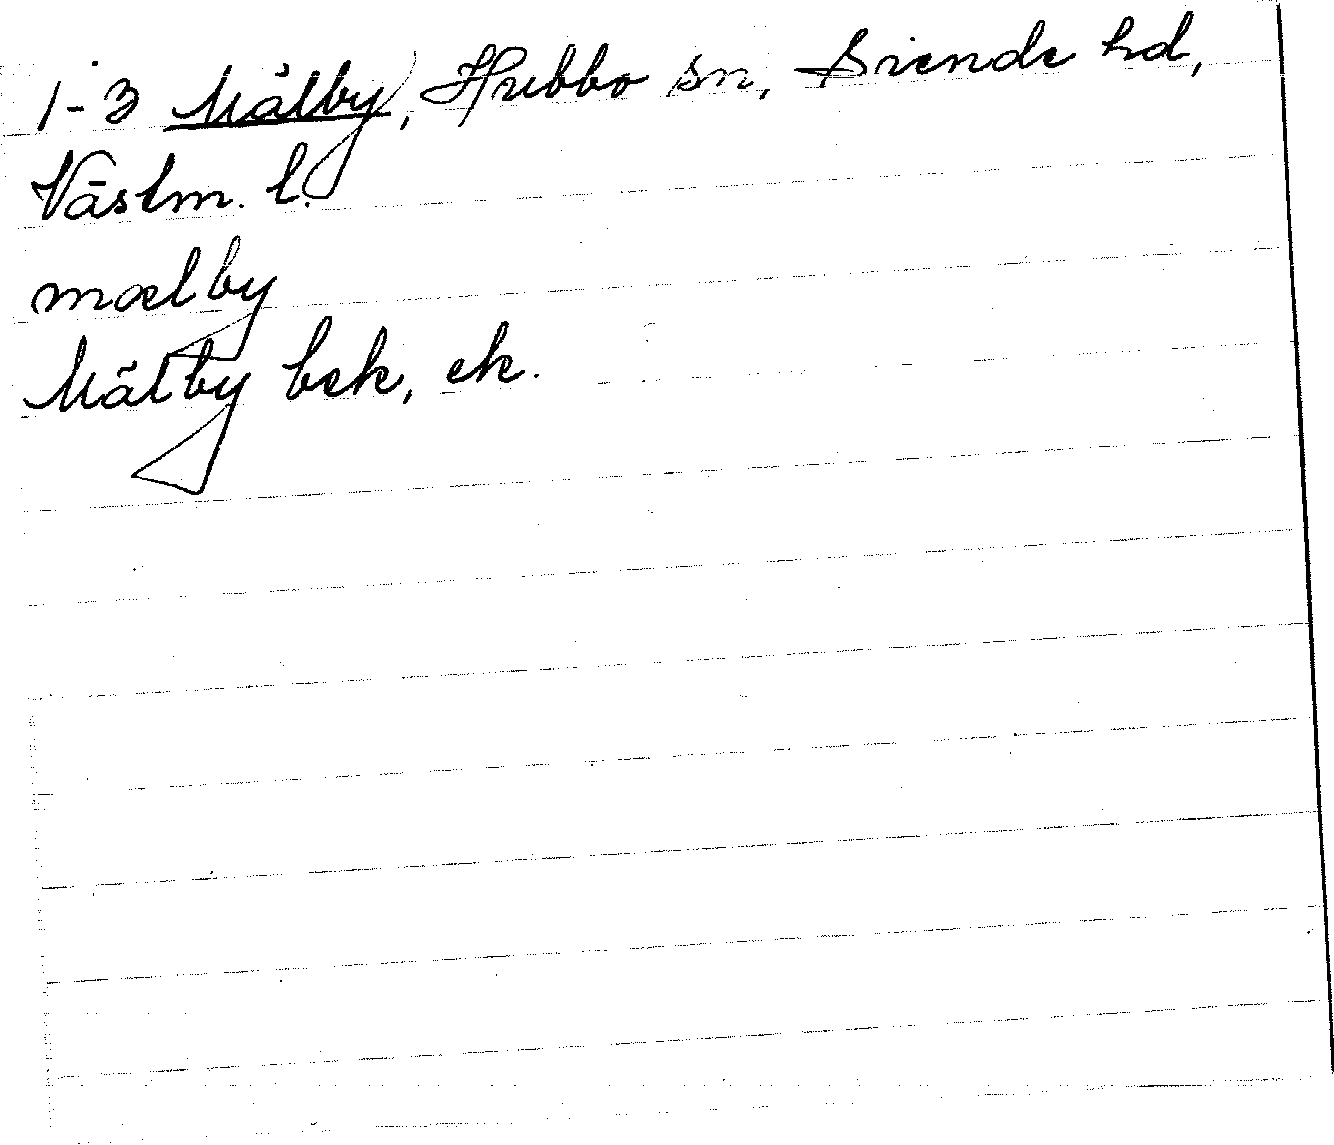 1-3 Mälby, Hubbo sn, Siende hd,
Västm. l.
mælby
Mälby bek, ek.